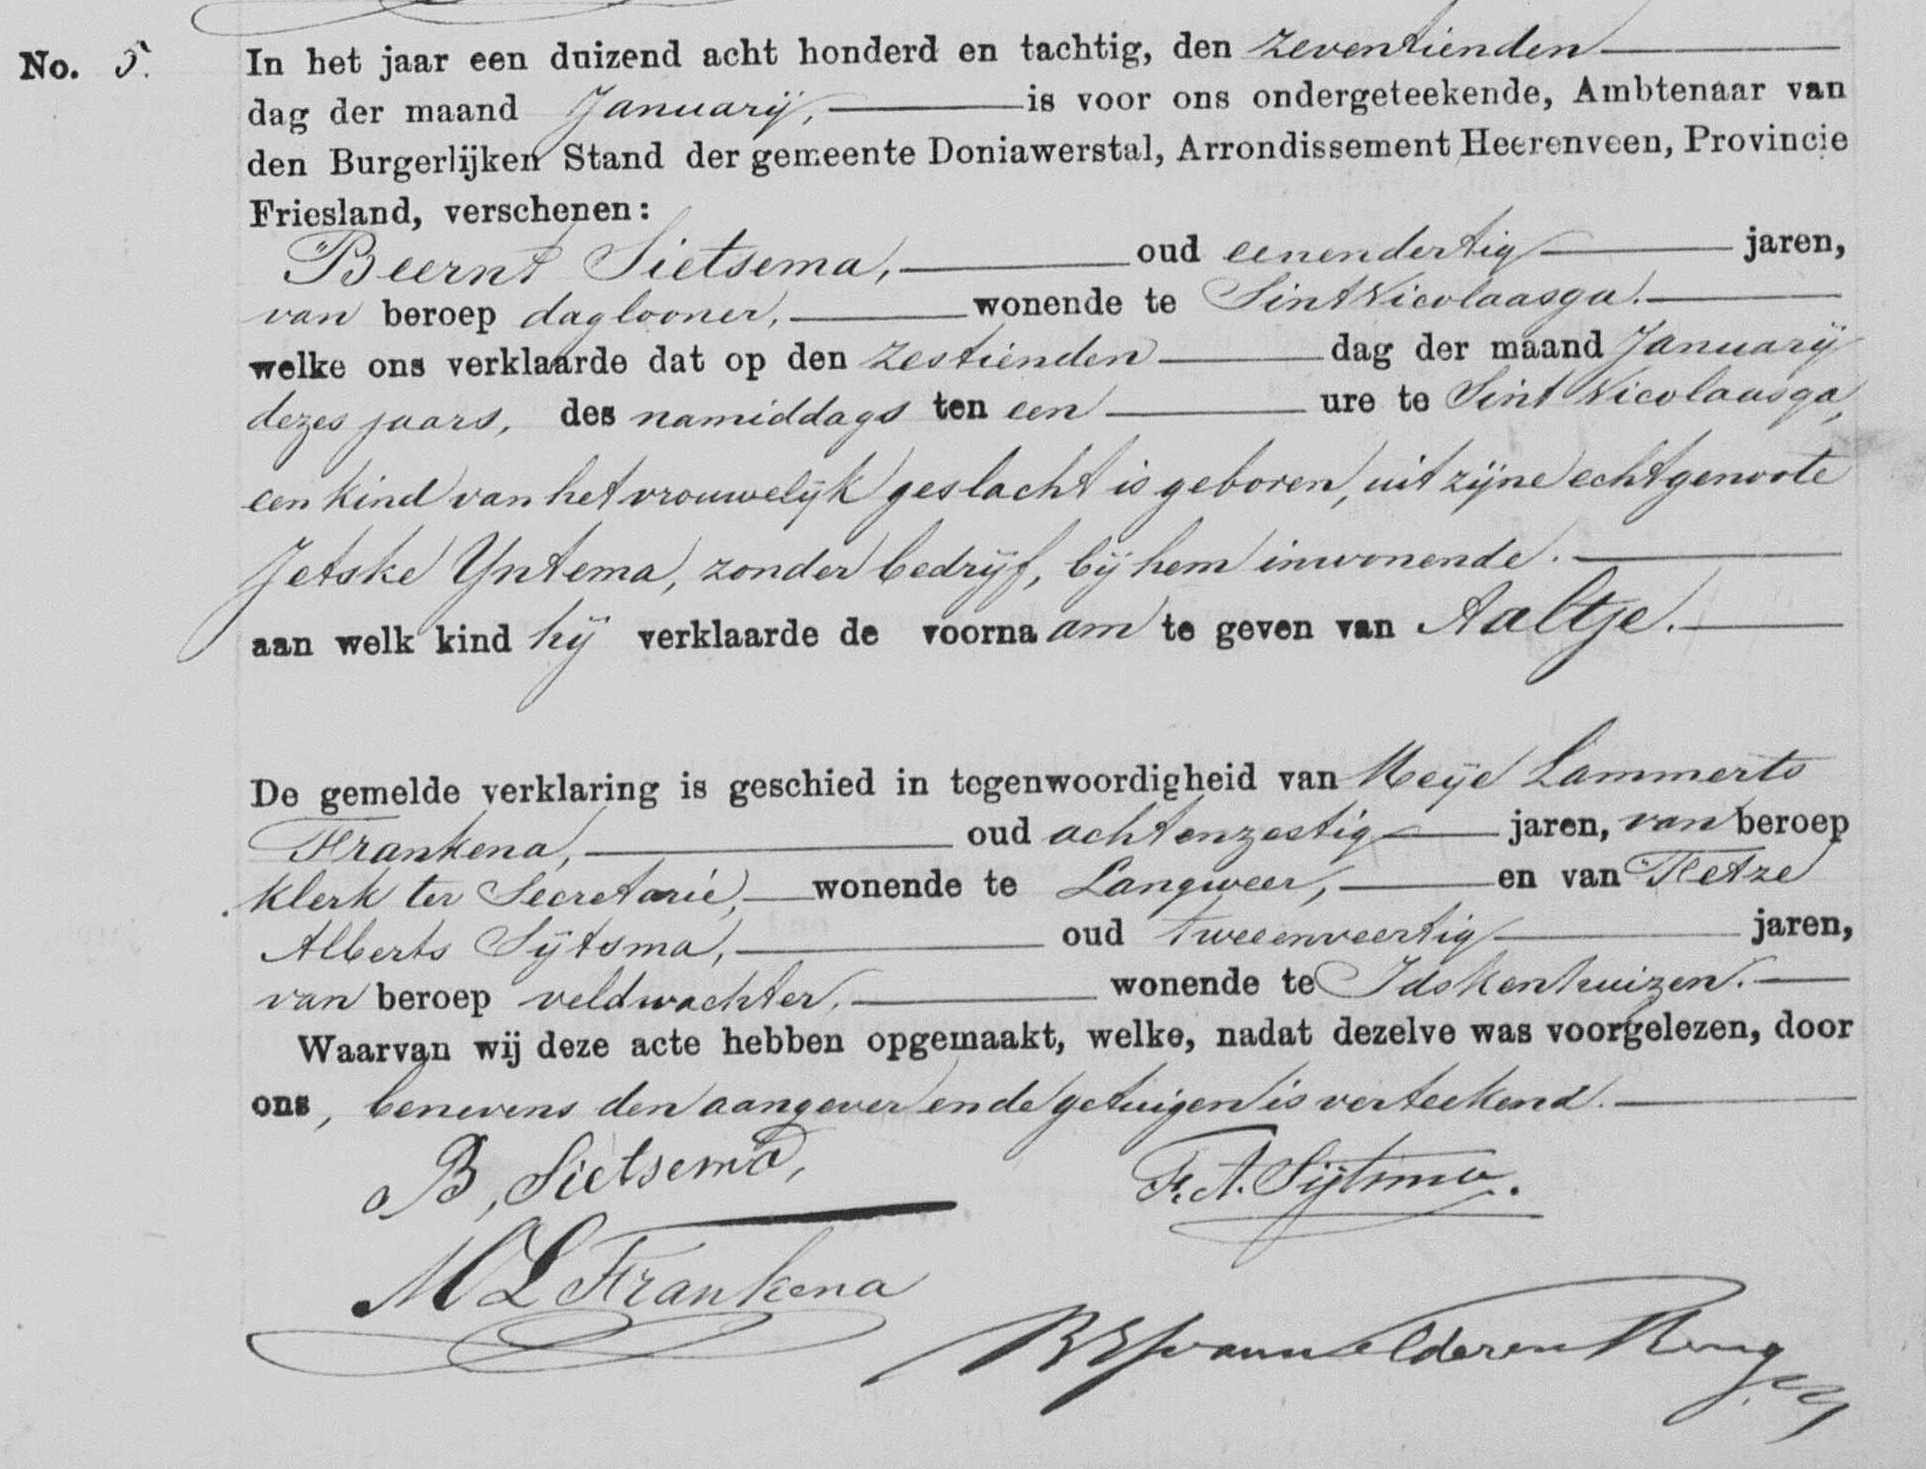 No. 5. In het jaar een duizend acht honderd en tachtig, den zeventienden
dag der maand Januarij, is voor ons ondergeteekende, Ambtenaar van
den Burgerlijken Stand der gemeente Doniawerstal, Arrondissement Heerenveen, Provincie
Friesland, verschenen:
Beernt Sietsema, oud eenendertig jaren,
van beroep daglooner, wonende te Sint Nicolaasga.
welke ons verklaarde dat op den zestienden dag der maand Januarij
dezes jaars, des namiddags ten een ure te Sint Nicolaasga,
een kind van het vrouwelijk geslacht is geboren, uit zijne echtgenoote
Jetske Yntema, zonder bedrijf, bij hem inwonende.
aan welk kind hij verklaarde de voornaam te geven van Aaltje.
De gemelde verklaring is geschied in tegenwoordigheid van Meije Lammerts
Frankena, oud achtenzestig jaren, van beroep
klerk ter Secretarie, wonende te Langweer, en van Fetze
Alberts Sijtsma, oud tweeenveertig jaren,
van beroep veldwachter, wonende te Idskenhuizen.
Waarvan wij deze acte hebben opgemaakt, welke, nadat dezelve was voorgelezen, door
ons, benevens den aangever en de getuigen is verteekend.
B, Sietsema, F. A. Sijtsma.
M L Frankena